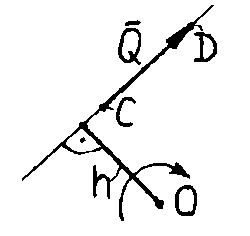 Q̄
D
C
h
O